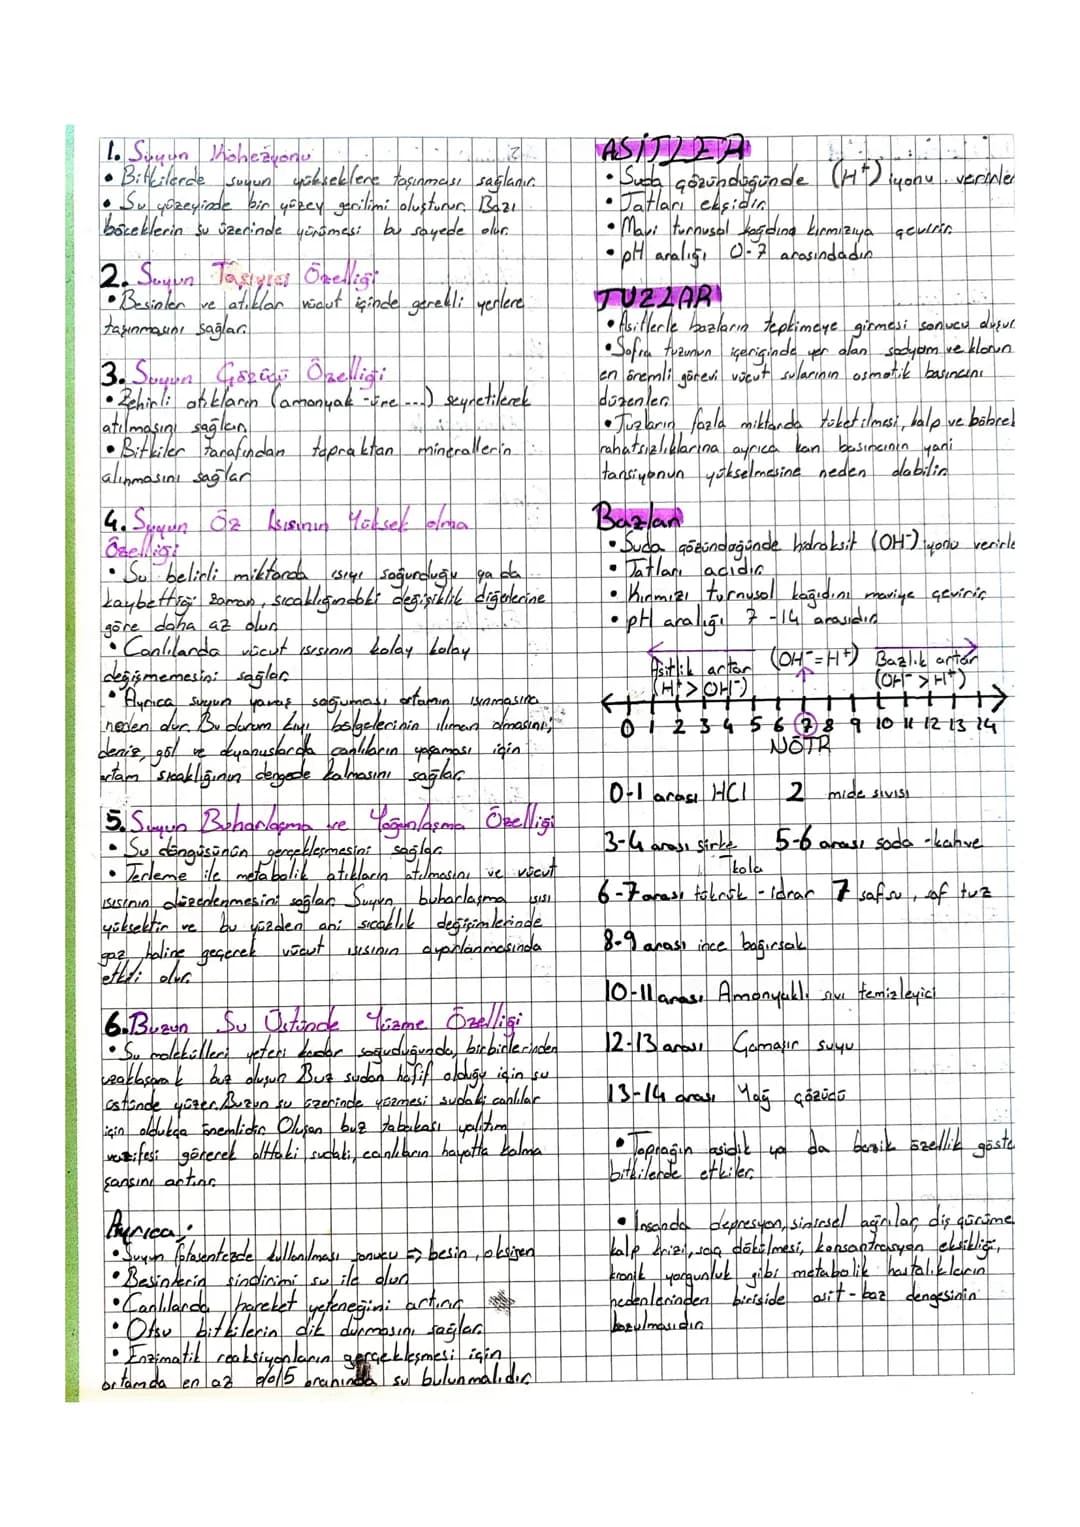 1. Suyun Kohezyonu
• Bitkilerde suyun yükseklere taşınması sağlanır.
• Su yüzeyinde bir yüzey gerilimi oluşturur. Bazı
böceklerin su üzerinde yürümesi bu sayede olur.
2. Suyun Taşıyıcı Özelliği
• Besinler ve atıklar vücut içinde gerekli yerlere
taşınmasını sağlar.
3. Suyun Çözücü Özelliği
• Zehirli atıkların (amonyak-üre ...) seyretilerek
atılmasını sağlar.
• Bitkiler tarafından topraktan minerallerin
alınmasını sağlar
4. Suyun Öz Isısının Yüksek olma
Özelliği
• Su belirli miktarda ısıyı soğurduğu ya da
kaybettiği zaman, sıcaklığındaki değişiklik diğerlerine
göre daha az olur.
• Canlılarda vücut ısısının kolay kolay
değişmemesini sağlar.
• Ayrıca suyun yavaş soğuması ortamın ısınmasına
neden olur. Bu durum kıyı bölgelerinin ılıman olmasını,
deniz, göl ve okyanuslarda canlıların yaşaması için
ortam sıcaklığının dengede kalmasını sağlar.
5. Suyun Buharlaşma ve Yoğunlaşma Özelliği
• Su döngüsünün gerçekleşmesini sağlar.
• Terleme ile metabolik atıkların atılmasını ve vücut
ısısının düzenlenmesini sağlar. Suyun buharlaşma ısısı
yüksektir ve bu yüzden ani sıcaklık değişimlerinde
gaz haline geçerek vücut ısısının ayarlanmasında
etkili olur.
6. Buzun Su Üstünde Yüzme Özelliği
• Su molekülleri yeteri kadar soğuduğunda, birbirlerinden
uzaklaşarak buz oluşur. Buz sudan hafif olduğu için su
üstünde yüzer. Buzun su üzerinde yüzmesi sudaki canlılar
için oldukça önemlidir. Oluşan buz tabakası yalıtım
vazifesi görerek alttaki sudaki canlıların hayatta kalma
şansını artırır.
Ayrıca:
• Suyun fotosentezde kullanılması sonucu => besin, oksijen
• Besinlerin sindirimi su ile olur
• Canlılarda hareket yeteneğini artırır
• Otsu bitkilerin dik durmasını sağlar.
• Enzimatik reaksiyonların gerçekleşmesi için
ortamda en az %15 oranında su bulunmalıdır.
ASİTLER
• Suda çözündüğünde (H⁺) iyonu verirler
• Tatları ekşidir.
• Mavi turnusol kağıdına kırmızıya çevirir.
• pH aralığı 0-7 arasındadır
TUZLAR
• Asitlerle bazların tepkimeye girmesi sonucu oluşur
• Sofra tuzunun içeriğinde yer alan sodyum ve klorun
en önemli görevi vücut sularının osmotik basıncını
düzenler
• Tuzların fazla miktarda tüketilmesi, kalp ve böbrek
rahatsızlıklarına ayrıca kan basıncının yani
tansiyonun yükselmesine neden olabilir.
Bazlar
• Suda çözündüğünde hidroksit (OH⁻) iyonu verirle
• Tatları acıdır
• Kırmızı turnusol kağıdını maviye çevirir
• pH aralığı 7-14 arasıdır
Asitlik artar (OH⁻=H⁺) Bazlık artar
(H⁺>OH⁻) (OH⁻>H⁺)
0 1 2 3 4 5 6 7 8 9 10 11 12 13 14
NÖTR
0-1 arası HCl 2 mide sıvısı
3-4 arası sirke 5-6 arası soda-kahve
kola
6-7 arası tükrük - idrar 7 saf su, saf tuz
8-9 arası ince bağırsak
10-11 arası Amonyaklı sıvı temizleyici
12-13 arası Çamaşır suyu
13-14 arası Yağ çözücü
• Toprağın asidik ya da bazik özellik göste
bitkilerde etkiler.
• İnsanda depresyon, sinirsel ağrılar, diş çürüme
kalp krizi, saç dökülmesi, konsantrasyon eksikliği,
kronik yorgunluk gibi metabolik hastalıkların
nedenlerinden biriside asit-baz dengesinin
bozulmasıdır